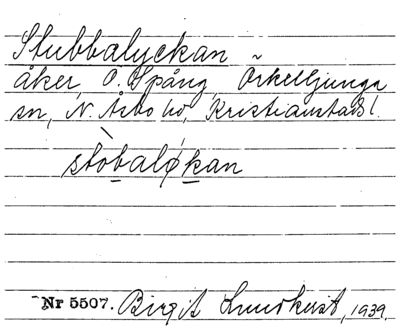 Stubbalyckan
åker, Ö. Spång, Örkelljunga
sn, N. Åsbo hd, Kristianstads l.
stòbalǿkan
Nr 5507. Birgit Lundkvist, 1939.